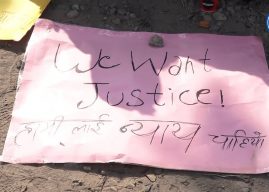 We Want
Justice!
हामी लाई न्याय चाहियो